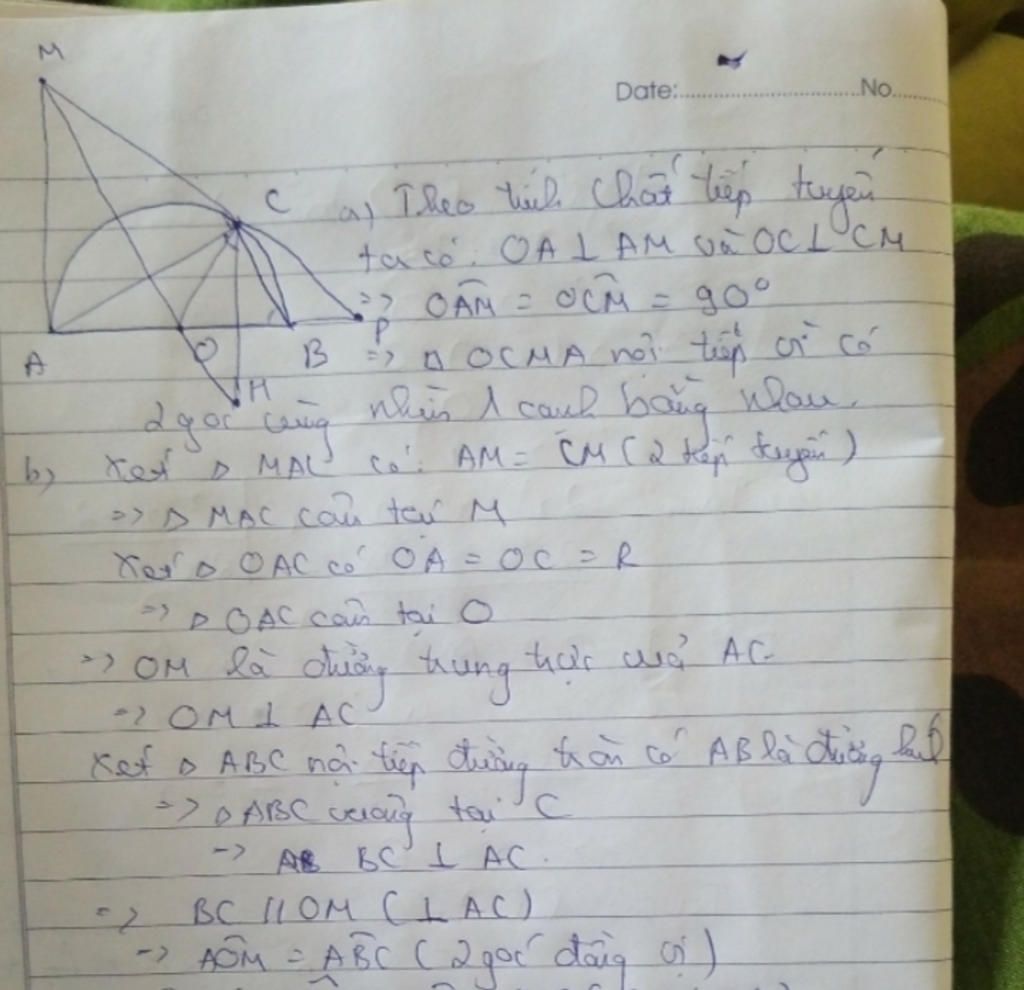 M
Date:..............................No.........
C
a) Theo tính chất tiếp tuyến
ta có: OA ⊥ AM và OC ⊥ CM
=> OÂM = OĈM = 90°
A O B P => Δ OCMA nội tiếp vì có
H
2 góc cùng nhìn 1 cạnh bằng nhau.
b) Xét Δ MAC có: AM = CM (2 tiếp tuyến)
=> Δ MAC cân tại M
Xét Δ OAC có OA = OC = R
=> Δ OAC cân tại O
=> OM là đường trung trực của AC
=> OM ⊥ AC
Xét Δ ABC nội tiếp đường tròn có AB là đường kính
=> Δ ABC vuông tại C
=> BC ⊥ AC.
=> BC // OM (⊥ AC)
=> AÔM = AB̂C (2 góc đồng vị)